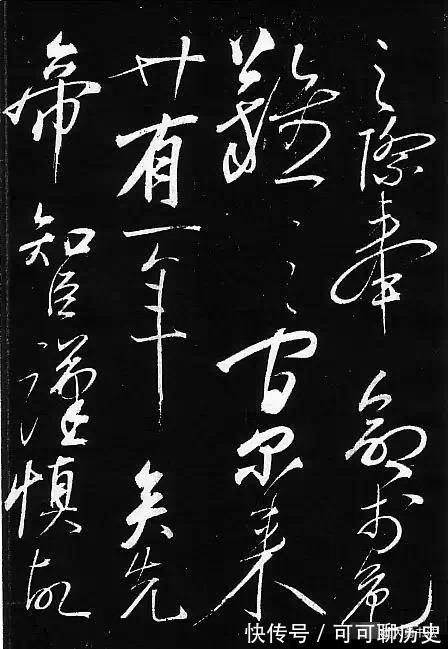 之際奉命於危
難之間尔来
廿有一年矣先
帝知臣謹慎故
快传号 / 可可聊历史